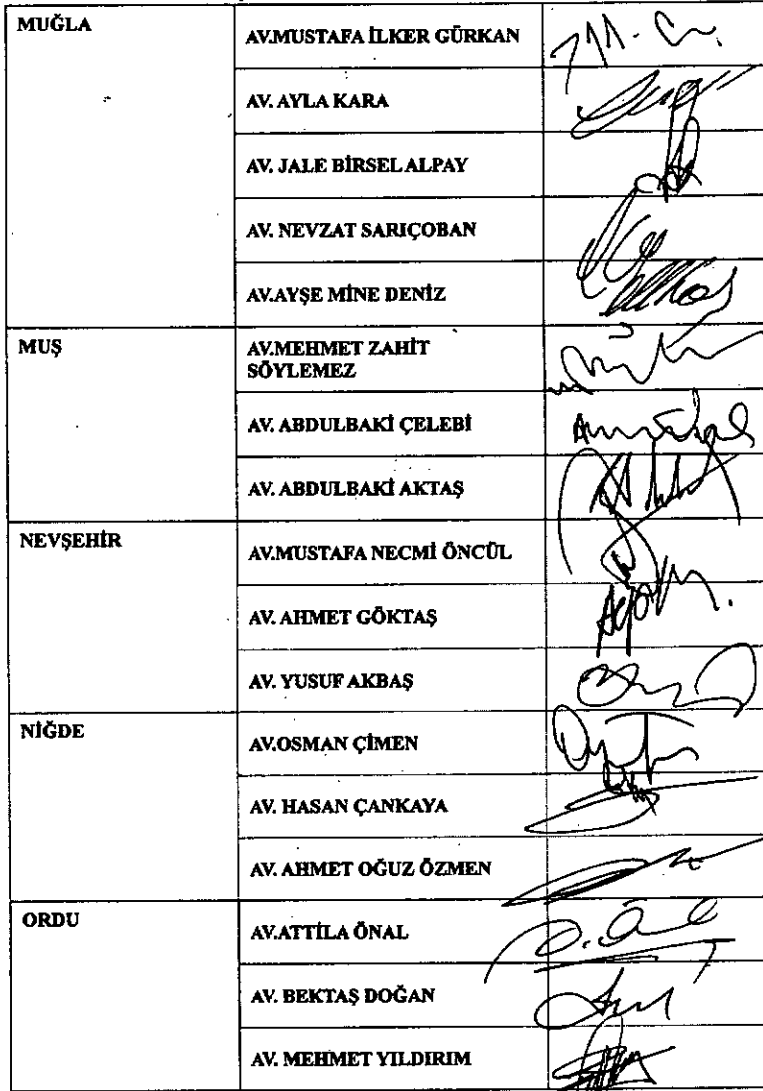 MUĞLA
AV.MUSTAFA İLKER GÜRKAN
AV. AYLA KARA
AV. JALE BİRSEL ALPAY
AV. NEVZAT SARIÇOBAN
AV.AYŞE MİNE DENİZ
MUŞ
AV.MEHMET ZAHİT
SÖYLEMEZ
AV. ABDULBAKİ ÇELEBİ
AV. ABDULBAKİ AKTAŞ
NEVŞEHİR
AV.MUSTAFA NECMİ ÖNCÜL
AV. AHMET GÖKTAŞ
AV. YUSUF AKBAŞ
NİĞDE
AV.OSMAN ÇİMEN
AV. HASAN ÇANKAYA
AV. AHMET OĞUZ ÖZMEN
ORDU
AV.ATTİLA ÖNAL
AV. BEKTAŞ DOĞAN
AV. MEHMET YILDIRIM